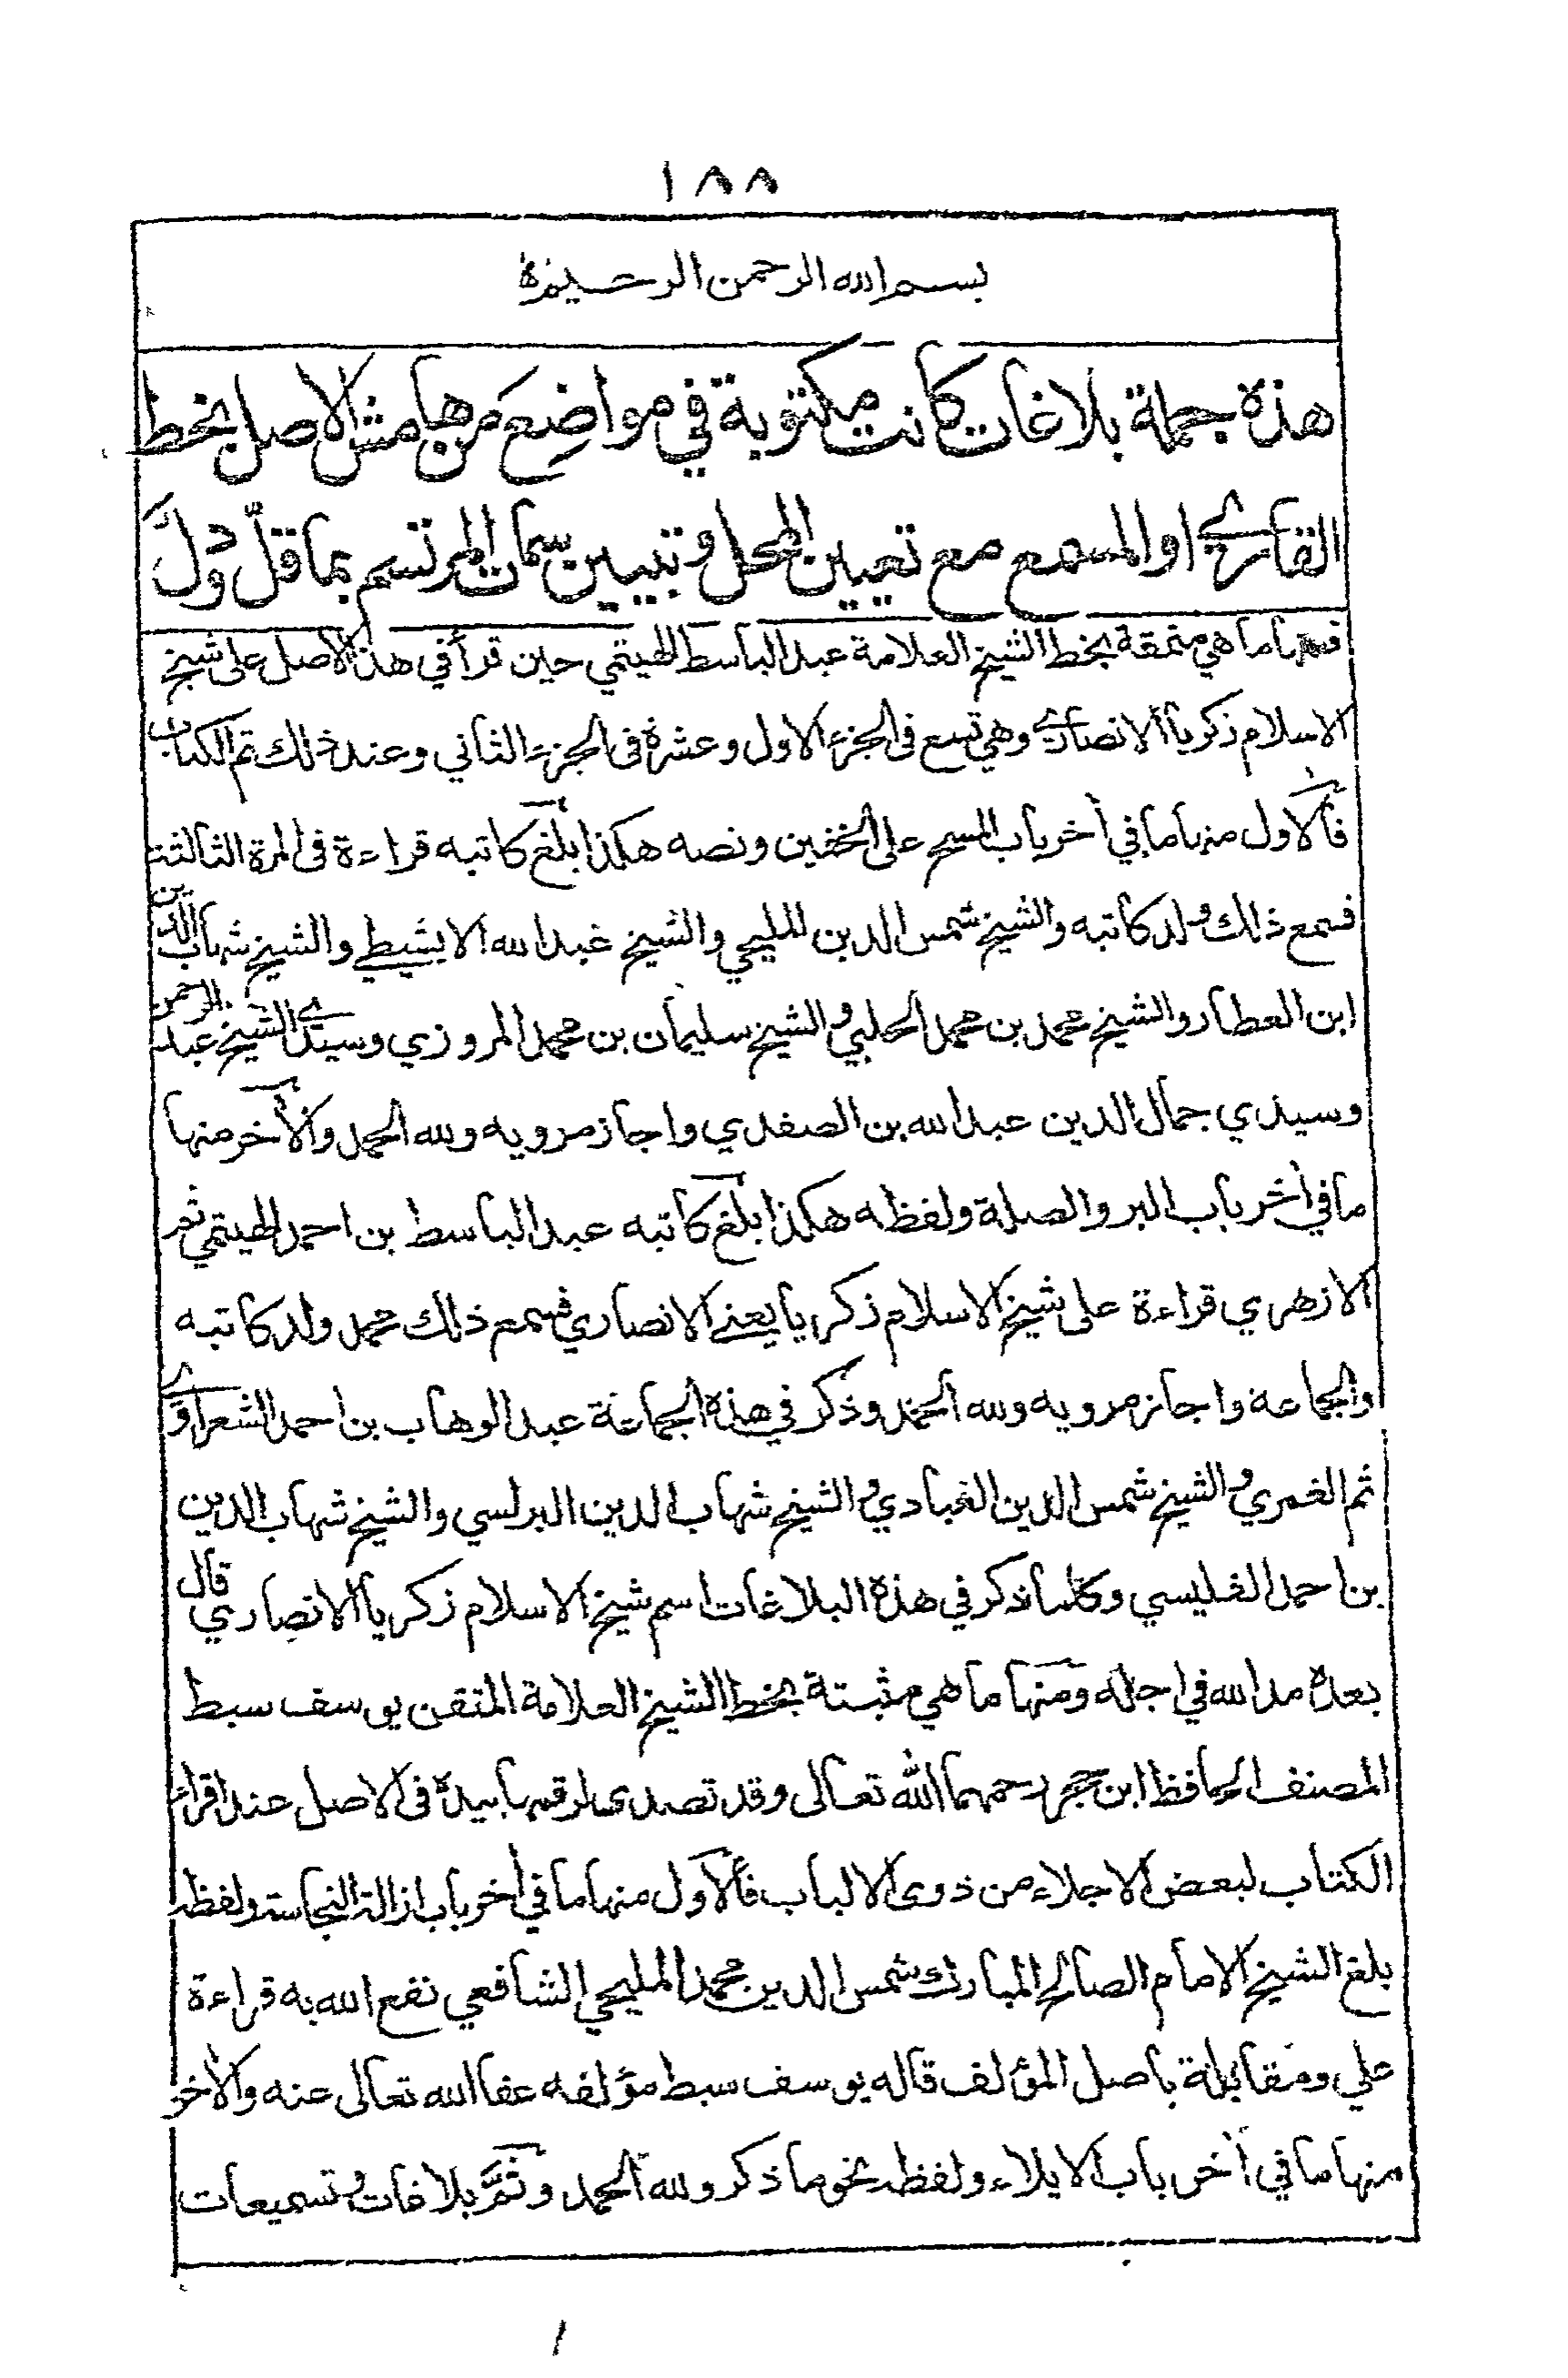 ١٨٨
بسم الله الرحمن الرحيم
هذه جملة بلاغات كانت مكتوبة في مواضع من هامش الاصل بخط
القارئ او المسمع مع تعيين المحل وتبيين سمات المرتسم بما قلّ ودلّ
فمنها ما هي منمقة بخط الشيخ العلامة عبد الباسط الهيتمي حين قرأ في هذا الاصل على شيخ
الاسلام زكريا الانصاري وهي تسع في الجزء الاول وعشرة في الجزء الثاني وعند ذلك تم الكتاب
فالاول منها ما في أخر باب المسح على الخفين ونصه هكذا بلغ كاتبه قراءة في المرة الثالثة
فسمع ذلك ولد كاتبه والشيخ شمس الدين المليجي والشيخ عبد الله الابشيطي والشيخ شهاب الدين
ابن العطار والشيخ محمد بن محمد الحلبي والشيخ سليمان بن محمد المروزي وسيدي الشيخ عبد الرحمن
وسيدي جمال الدين عبد الله بن الصفدي واجاز مرويه ولله الحمد والآخر منها
ما في أخر باب البر والصلة ولفظه هكذا بلغ كاتبه عبد الباسط بن احمد الهيتمي ثم
الازهري قراءة على شيخ الاسلام زكريا يعني الانصاري فسمع ذلك محمد ولد كاتبه
والجماعة واجاز مرويه ولله الحمد وذكر في هذه الجماعة عبد الوهاب بن احمد الشعراوي
ثم الغمري والشيخ شمس الدين العبادي والشيخ شهاب الدين البرلسي والشيخ شهاب الدين
بن احمد الفليسي وكلما ذكر في هذه البلاغات اسم شيخ الاسلام زكريا الانصاري قال
بعده مد الله في اجله ومنها ما هي مثبتة بخط الشيخ العلامة المتقن يوسف سبط
المصنف الحافظ ابن حجر رحمهما الله تعالى وقد تصدى لرقمها بيده في الاصل عند اقراء
الكتاب لبعض الاجلاء من ذوى الالباب فالاول منها ما في أخر باب ازالة النجاسة ولفظه
بلغ الشيخ الامام الصالح المبارك شمس الدين محمد المليجي الشافعي نفع الله به قراءة
علي ومقابلة باصل المؤلف قاله يوسف سبط مؤلفه عفا الله تعالى عنه والأخر
منها ما في أخر باب الايلاء ولفظه نحو ما ذكر ولله الحمد وثمّ بلاغات وتسميعات